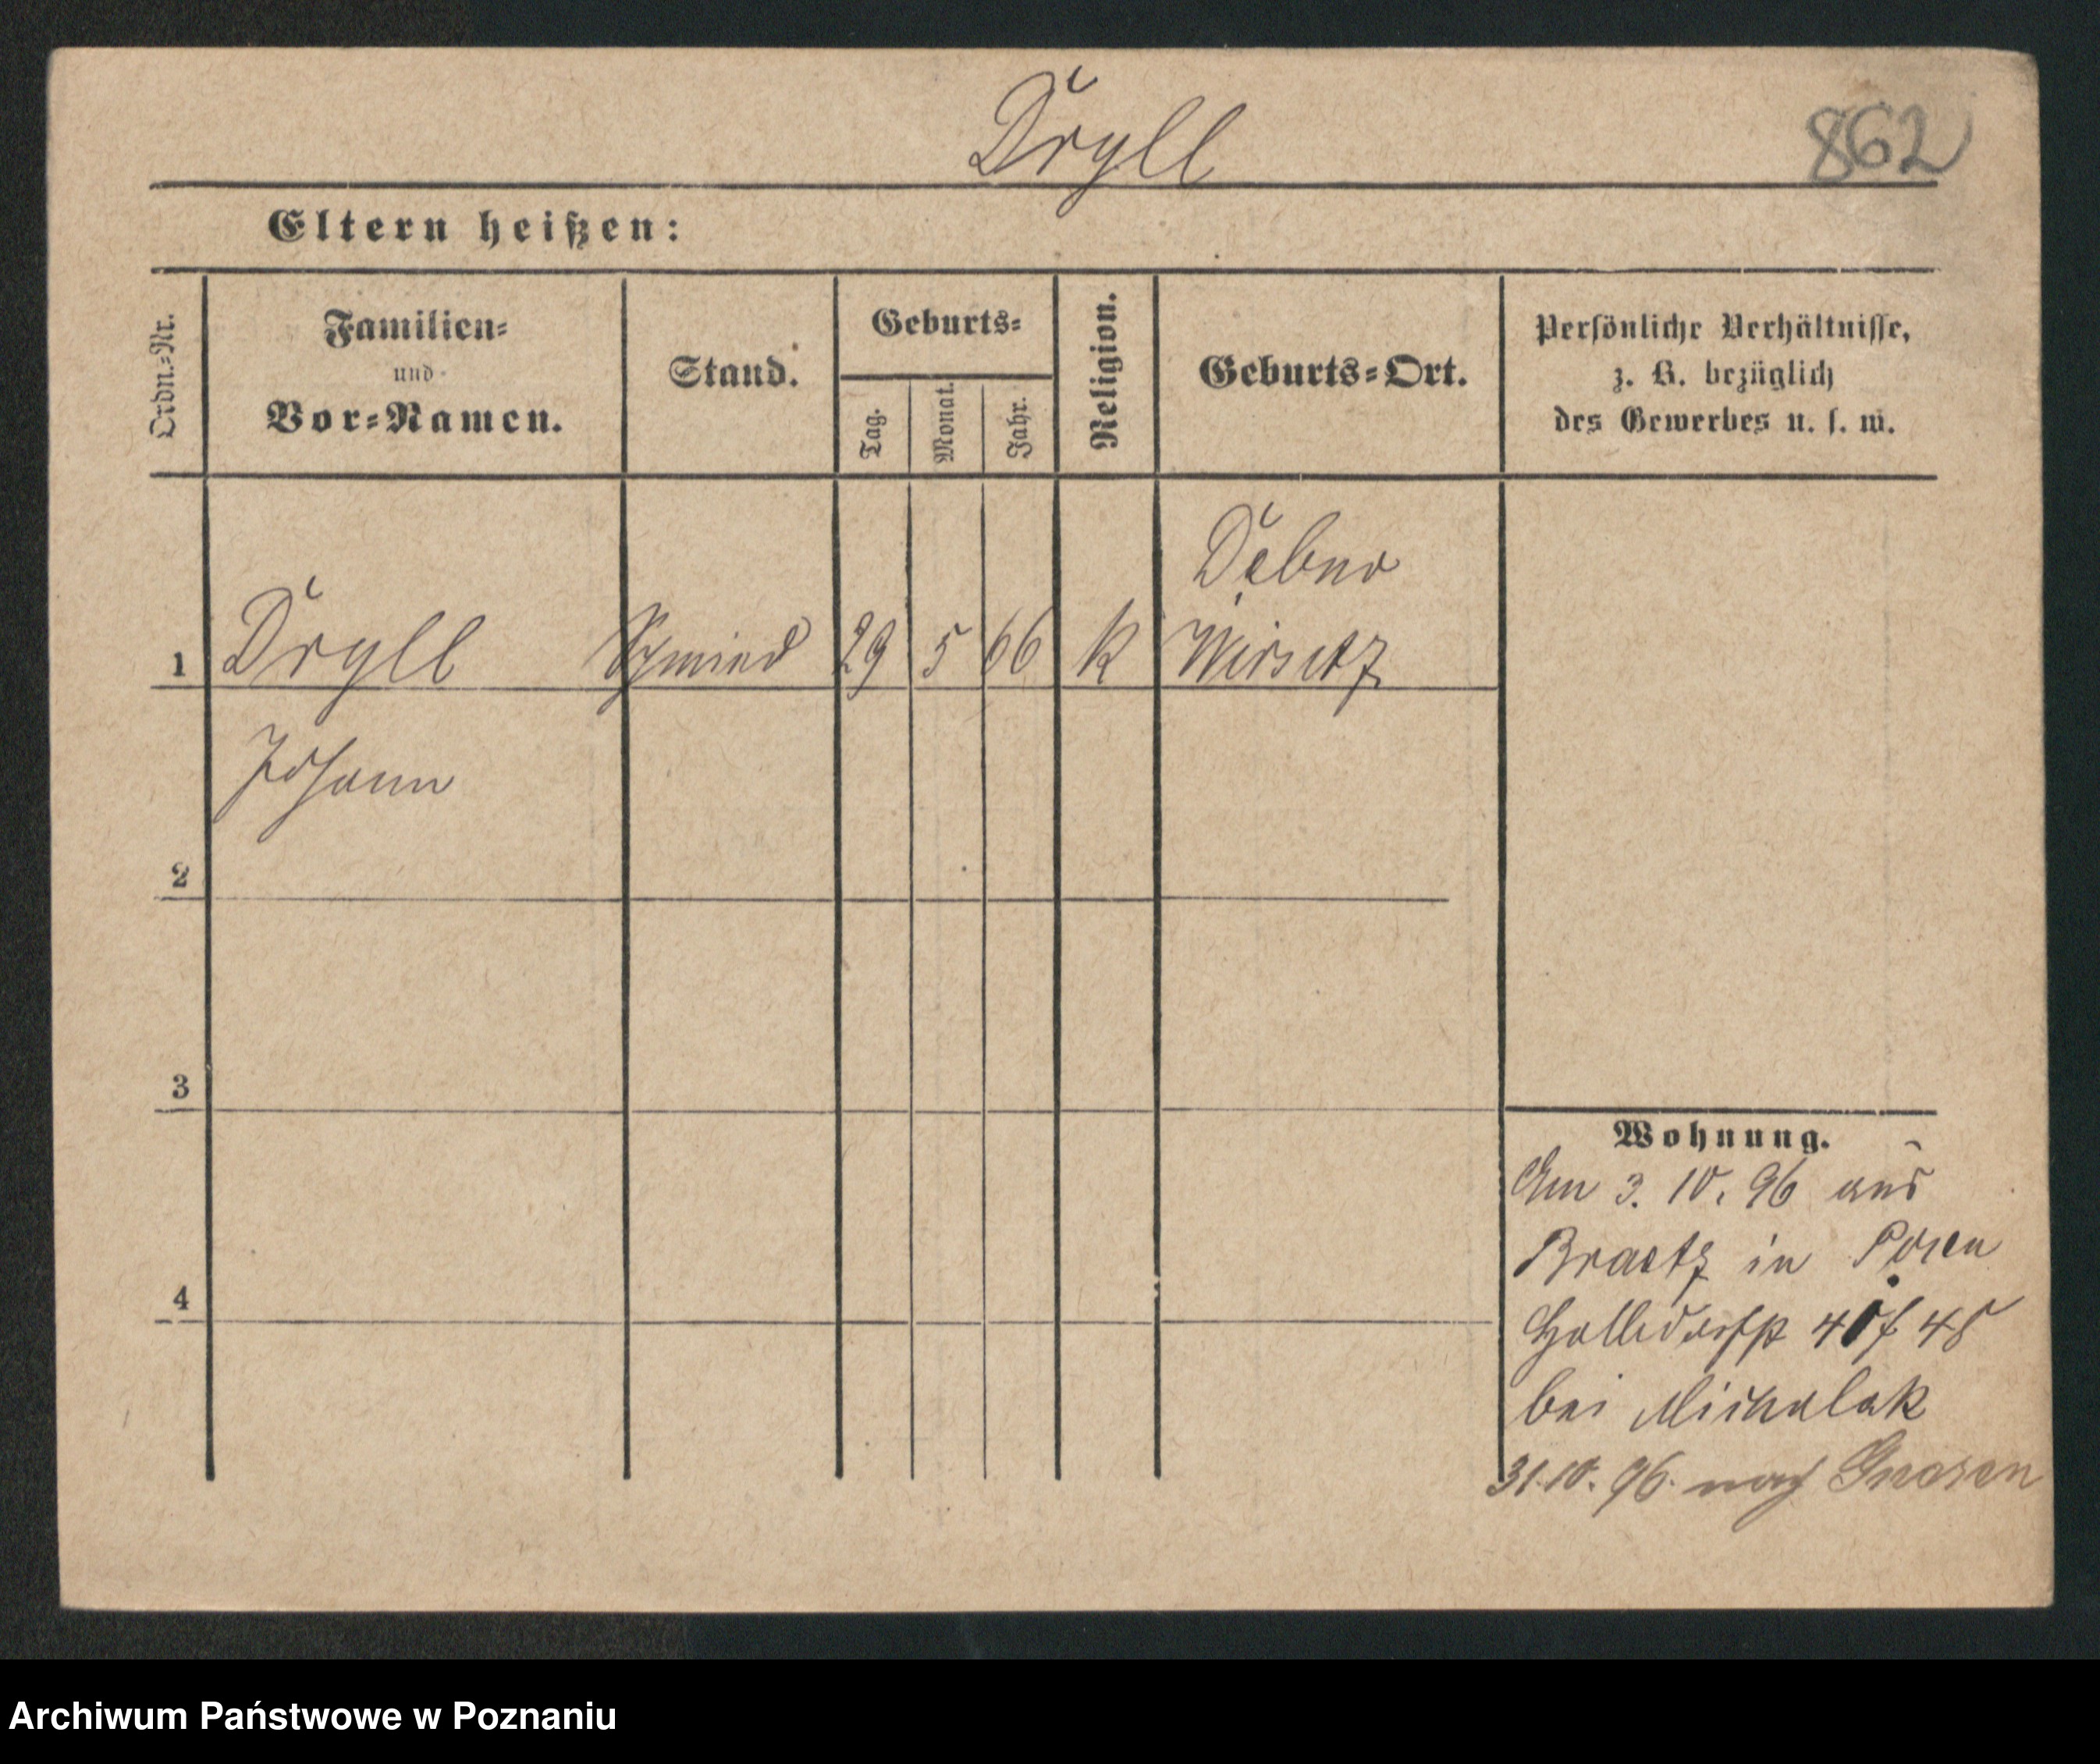 Dryll
862
Eltern heißen:
Ordn.-Nr.
Familien-
und
Vor-Namen.
Stand.
Geburts-
Tag.
Monat.
Jahr.
Religion.
Geburts-Ort.
Persönliche Verhältnisse,
z. B. bezüglich
des Gewerbes u. s. w.
1 Dryll Schmied 29 5 66 K Dabno
Wirsitz
Johann
2
3
4
Wohnung.
Am 3. 10. 96 aus
Braetz in Posen
48
bei Michalak
31.10.96. nach Gnesen
Archiwum Państwowe w Poznaniu